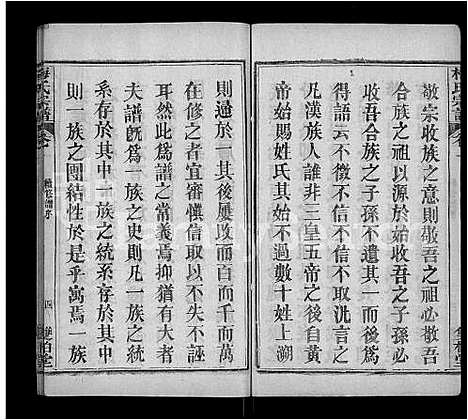 敬宗收族之意則敬吾之祖必敬
合族之祖以源於吾之子孫必
不遺合族之子孫不遺其一而已
得語云不徵不信不取汎言
凡漢族人誰非三皇五帝之後自黄
帝始賜姓氏其姓不過數十姓上溯
則適於一其後屢改而百而千而萬
在修之者宜審慎信取以不失誣
耳然此爲譜之常義焉抑猶有大者
夫譜旣爲一族之史則凡一族之統
系存於其中一族之統系存於其中
則一族之團結性於是乎寓焉一族
梅氏宗譜
續修譜序
四